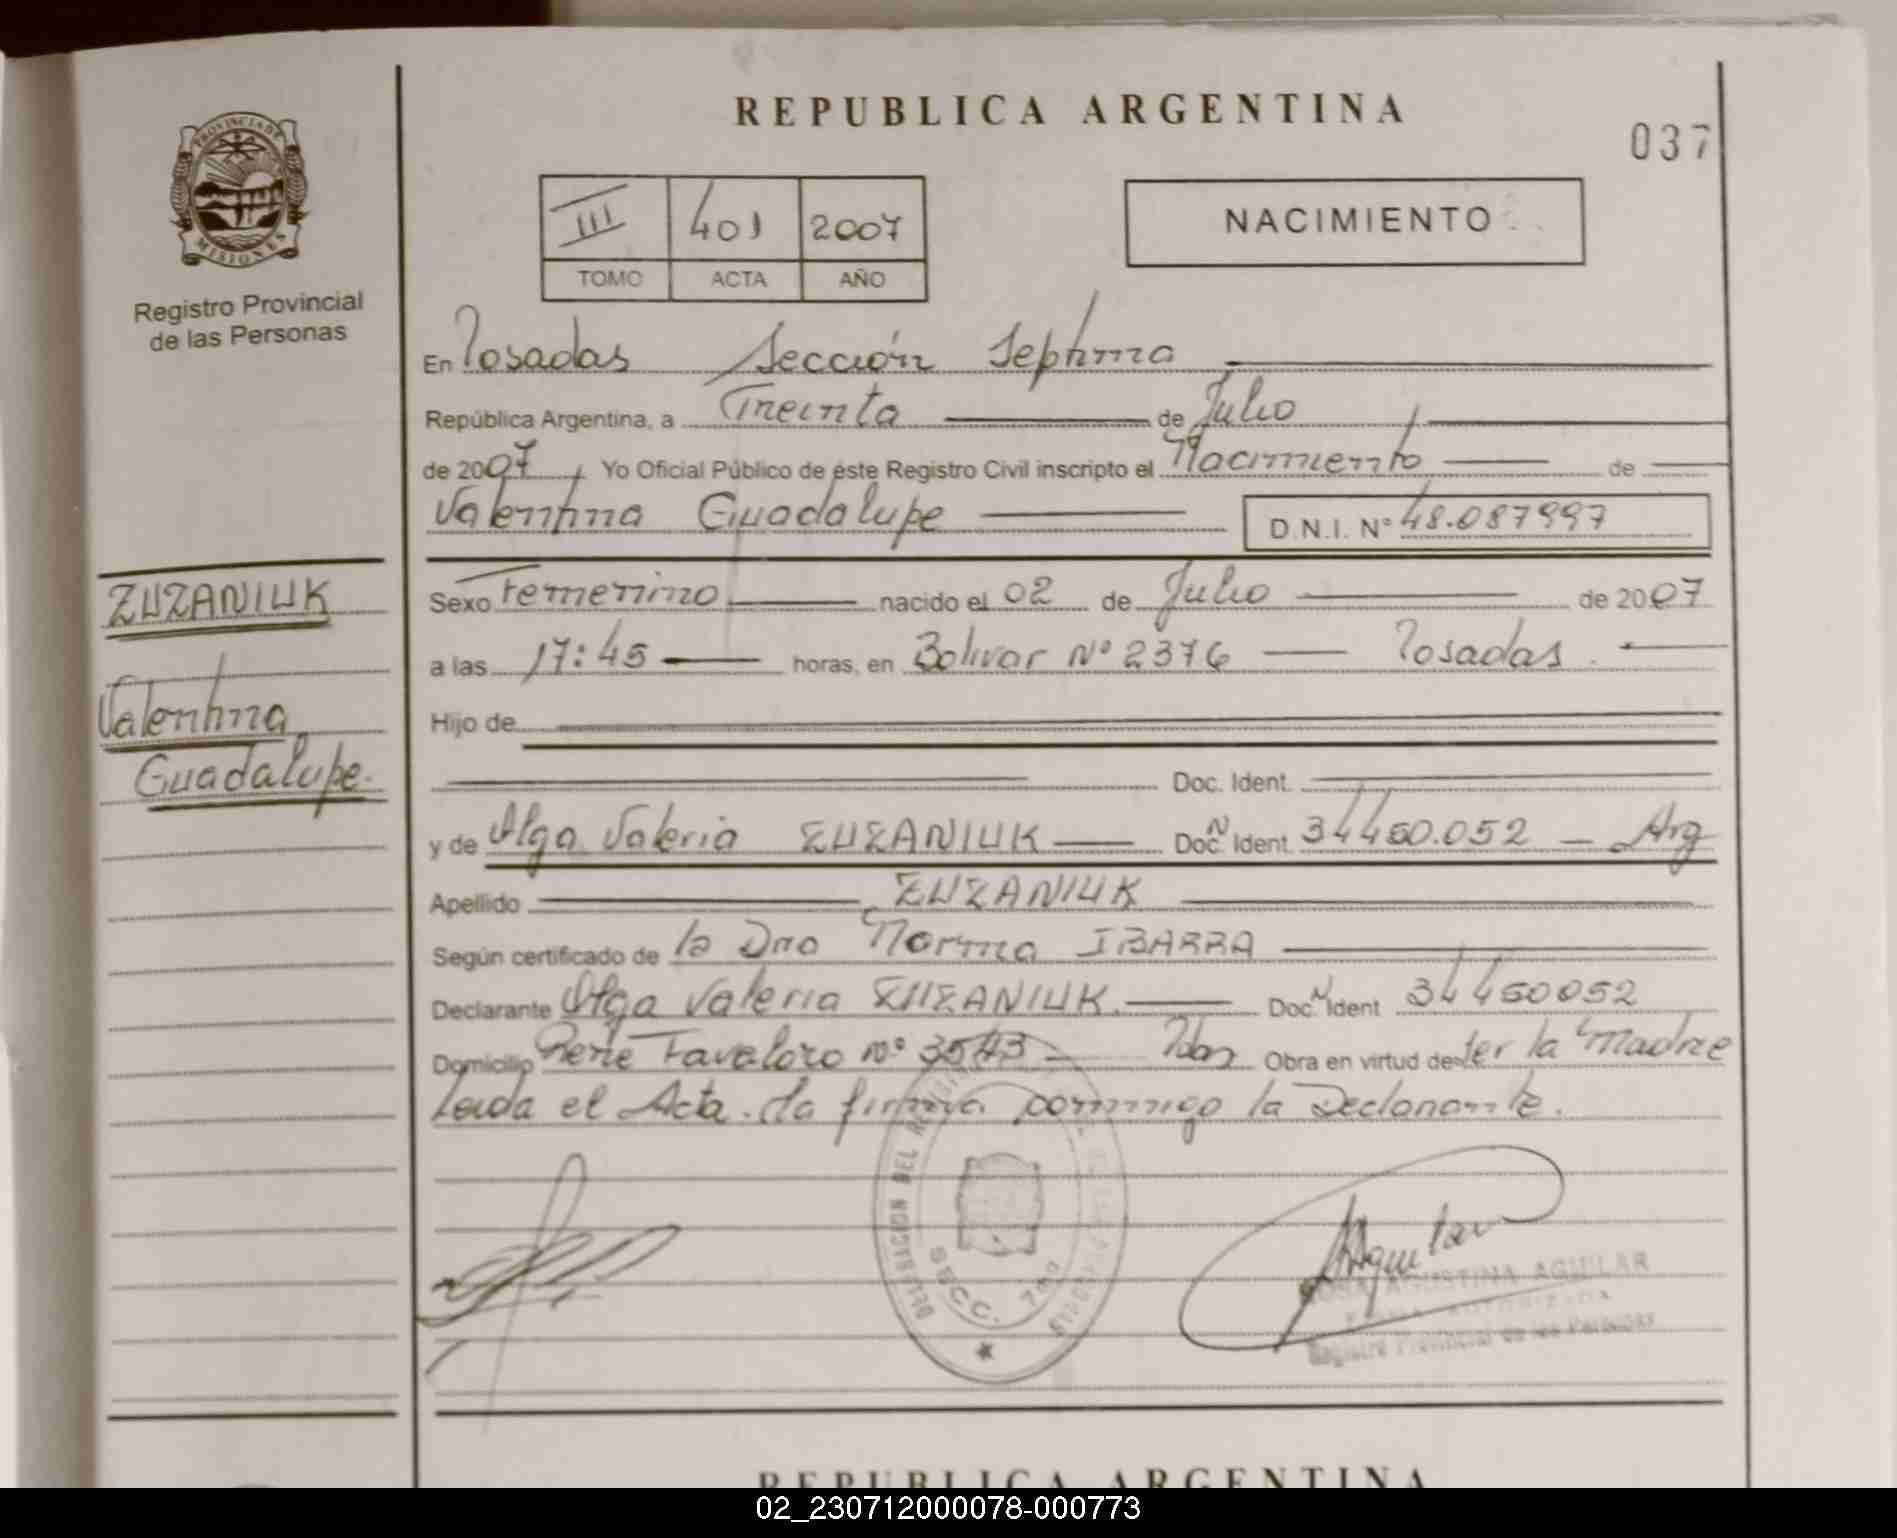 REPUBLICA ARGENTINA
037
PROVINCIA DE
MISIONES
Registro Provincial
de las Personas
III 401 2007
TOMO ACTA AÑO
NACIMIENTO
En Posadas Sección Septima
República Argentina, a Treinta de Julio
de 2007, Yo Oficial Público de éste Registro Civil inscripto el Nacimiento de
Valentina Guadalupe D.N.I. Nº 48.087997
ZUZANIUK
Valentina
Guadalupe.
Sexo Femenino nacido el 02 de Julio de 2007
a las 17:45 horas, en Bolivar Nº 2376 Posadas.
Hijo de
Doc. Ident.
y de Olga Valeria ZUZANIUK Doc. N Ident. 34450.052 - Arg
Apellido ZUZANIUK
Según certificado de la Dra Norma IBARRA
Declarante Olga Valeria ZUZANIUK. Doc. N Ident 34450052
Domicilio Rene Favaloro nº 3543 Pdas Obra en virtud de ser la Madre
Leida el Acta. la firma conmigo la Declarante.
DELEGACION DEL
SECC. 7ma
Aguilar
ROSA AGUSTINA AGUILAR
FIRMA AUTORIZADA
Registro Provincial de las Personas
REPUBLICA ARGENTINA
02_230712000078-000773